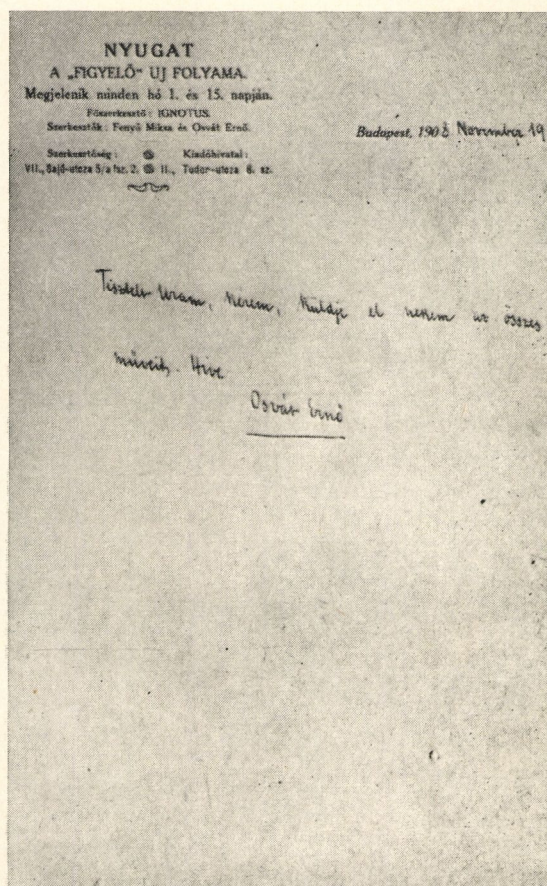 NYUGAT
A „FIGYELŐ” UJ FOLYAMA.
Megjelenik minden hó 1. és 15. napján.
Főszerkesztő: IGNOTUS.
Szerkesztők: Fenyő Miksa és Osvát Ernő.
Szerkesztőség: Kiadóhivatal:
VII., Sajó-utcza 5/a fsz. 2. II., Tudor-utcza 6. sz.
Budapest, 1908 November 19
Tisztelt Uram, kérem, küldje el nekem az összes
műveit. Hive
Osvát Ernő